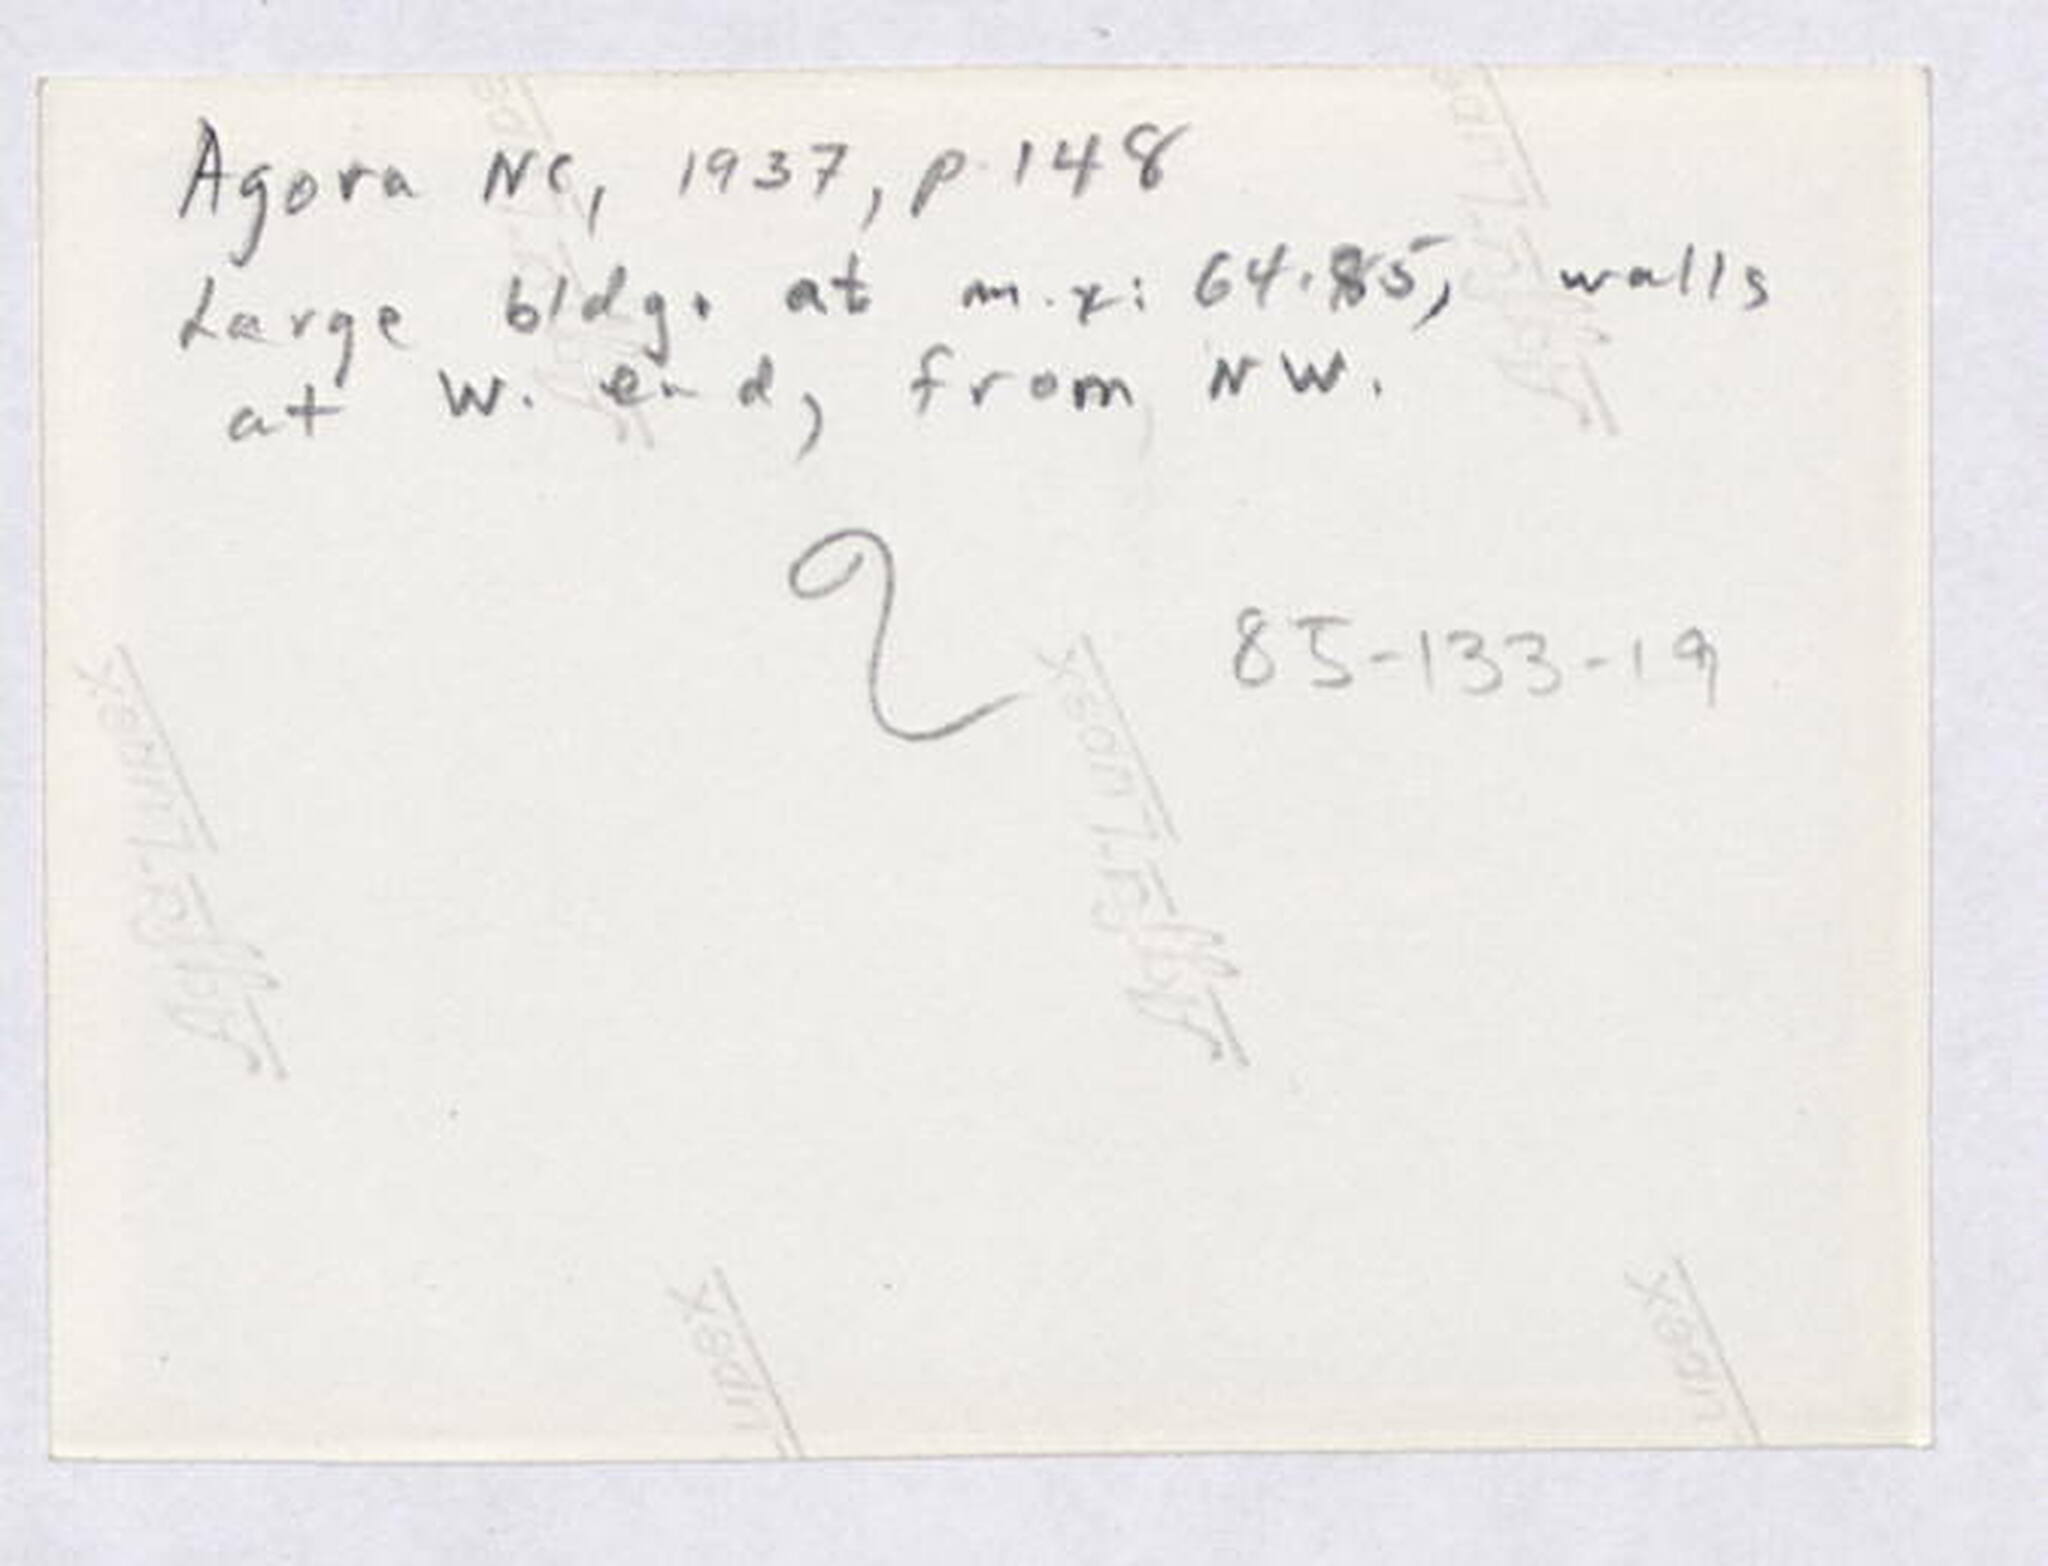 Agora NC, 1937, p. 148
Large bldg. at m.x: 64.85, walls
at W. end, from NW.
85-133-19
Agfa-Lupex
Agfa-Lupex
Agfa-Lupex
Lupex
Lupex